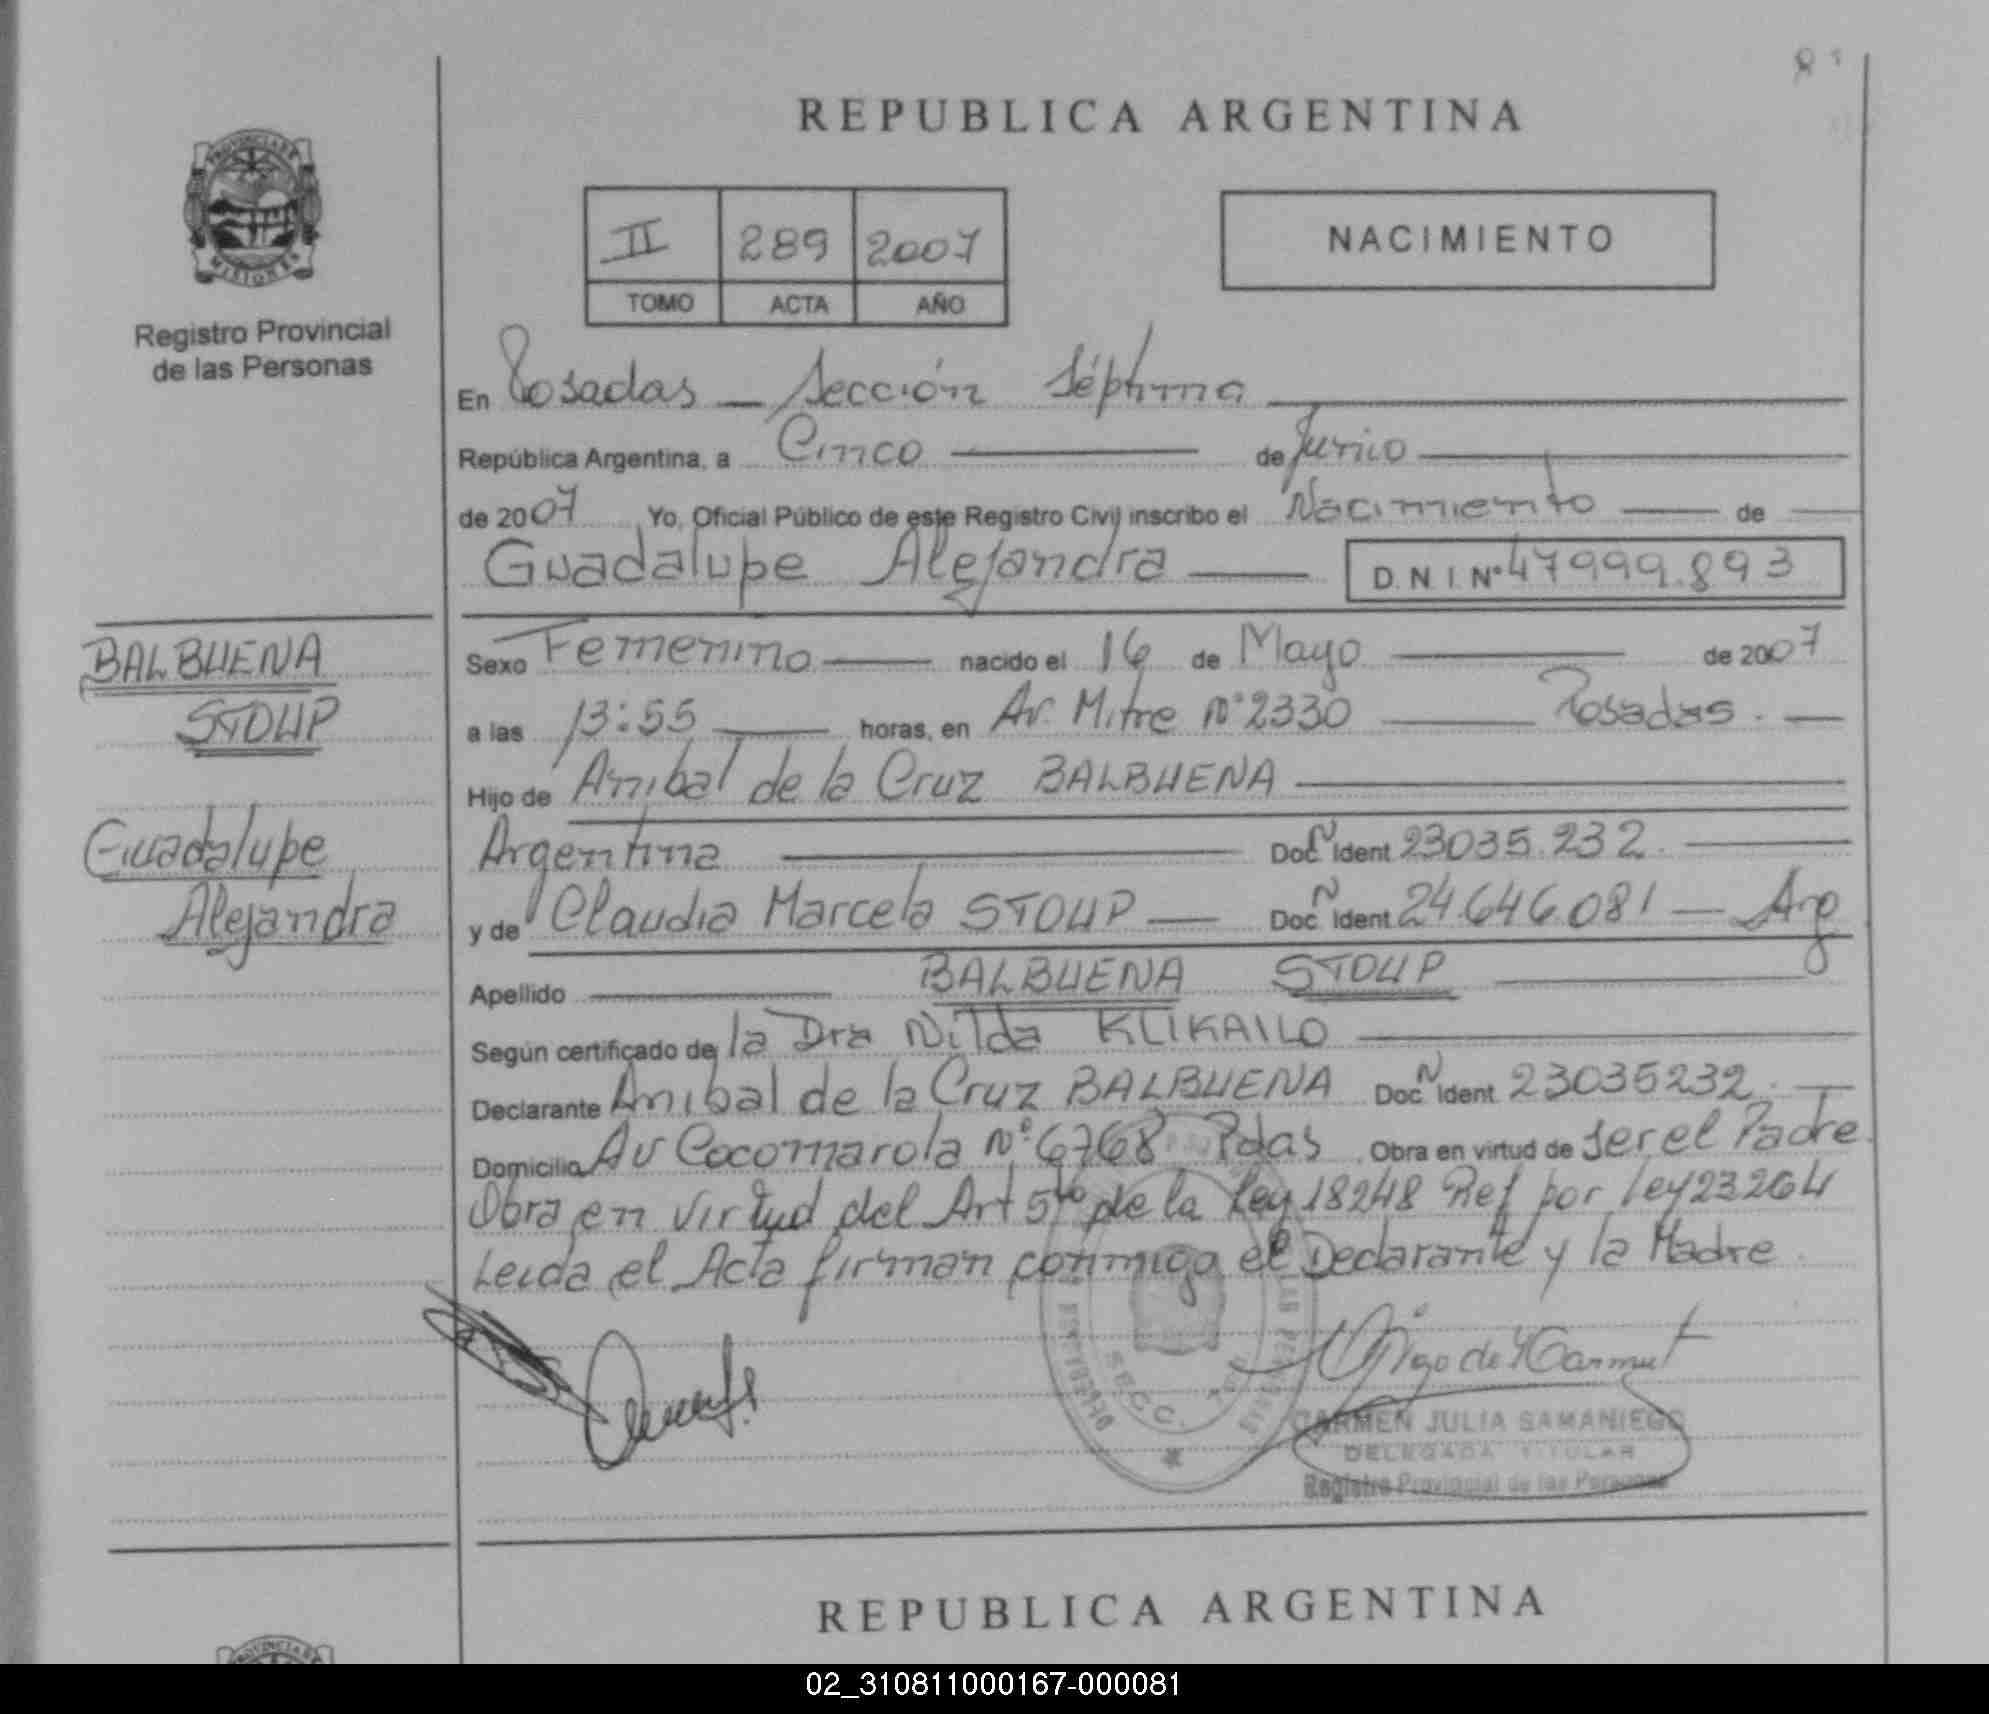 REPUBLICA ARGENTINA
PROVINCIA DE
MISIONES
Registro Provincial
de las Personas
II 289 2007
TOMO ACTA AÑO
NACIMIENTO
En Posadas _ Sección Séptima
República Argentina, a Cinco de Junio
de 2007 Yo, Oficial Público de este Registro Civil inscribo el Nacimiento de
Guadalupe Alejandra D.N.I. Nº 47999.893
BALBUENA
STOUP
Guadalupe
Alejandra
Sexo Femenino nacido el 16 de Mayo de 2007
a las 13:55 horas, en Av. Mitre Nº 2330 Posadas.
Hijo de Anibal de la Cruz BALBUENA
Argentina Doc N Ident 23035.232.
y de Claudia Marcela STOUP Doc N Ident 24.646.081 _ Arg
Apellido BALBUENA STOUP
Según certificado de la Dra Nilda KLIKAILO
Declarante Anibal de la Cruz BALBUENA Doc N Ident 23035232.
Domicilio Av Cocomarola Nº 6768 Pdas. Obra en virtud de Ser el Padre.
Obra en virtud del Art 5to de la Ley 18248 Ref por ley 23264
Leida el Acta firman conmigo el Declarante y la Madre.
SECC. 7
CARMEN JULIA SAMANIEGO
DELEGADA TITULAR
Registro Provincial de las Personas
REPUBLICA ARGENTINA
02_310811000167-000081